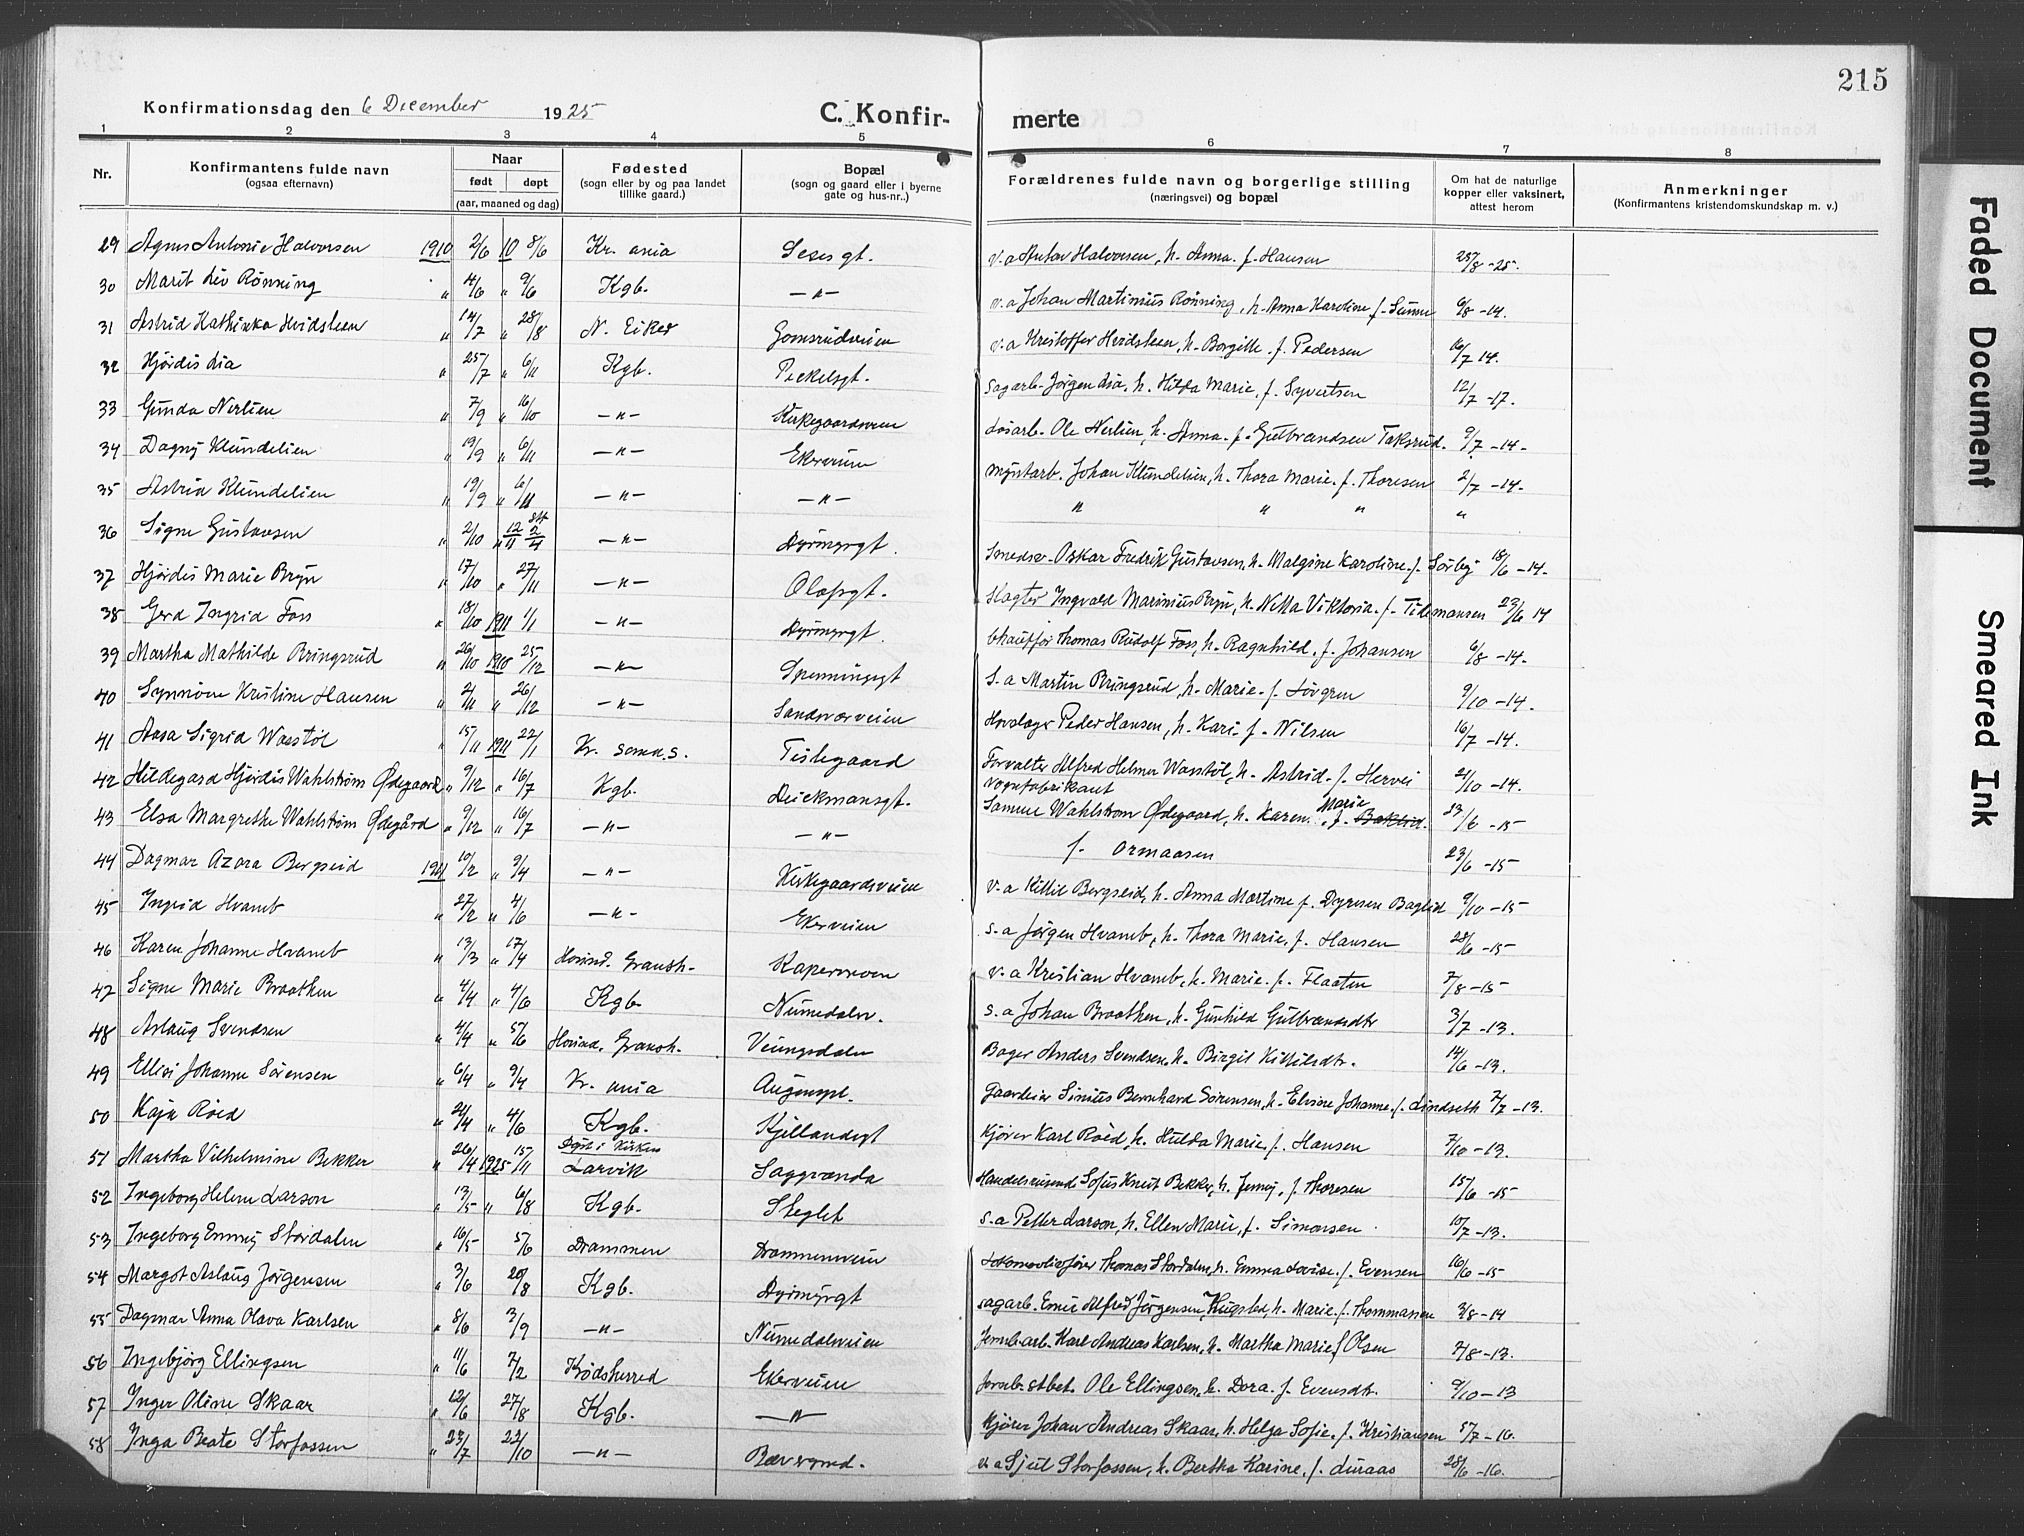 215
Konfirmationsdag den 6 December 1925
C. Konfir-
merte
1 2 3 4 5 6 7 8
Nr.
Konfirmantens fulde navn
(ogsaa efternavn)
Naar
født døpt
(aar, maaned og dag)
Fødested
(sogn eller by og paa landet
tillike gaard.)
Bopæl
(sogn og gaard eller i byerne
gate og hus-nr.)
Forældrenes fulde navn og borgerlige stilling
(næringsvei) og bopæl
Om hat de naturlige
kopper eller vaksinert,
attest herom
Anmerkninger
(Konfirmantens kristendomskundskap m. v.)
29 Agnes Antonie Halvorsen 1910 2/6 10 8/6 Kr. ania v.a Anton Halvorsen, h. Anna f. Hansen 25/8 -25.
30 Marit Liv Rönning " 4/6 " 9/6 Kgb. -"- v.a Johan Martinius Rönning, h. Anna Karoline f. 6/8 -14.
31 Astrid Kathinka Hvidsteen " 14/7 " 28/8 N. Eiker Gomsrudveien v.a Kristoffer Hvidsteen, h. Borgille f. Pedersen 16/7 14.
32 Hjördis Lia " 25/7 " 6/11 Kgb. Peckelsgt. Sagarb. Jörgen Lia, h. Hilda Marie, f. Syvertsen 12/7 -17.
33 Gunda Nerlien " 7/9 " 16/10 -"- Kirkegaardsveien Løsarb. Ole Nerlien, h. Anna f. Gulbrandsen Taksrud. 9/7 -14.
34 Dagny Klundelien " 19/9 " 6/11 -"- Ekerveien Myntarb. Johan Klundelien, h. Thora Marie f. Thoresen 2/7 -14.
35 Astrid Klundelien " 19/9 " 6/11 -"- -"- " " " "
36 Signe Gustavsen " 2/10 " -"- Dyrmyrgt. Smedsv. Oskar Fredrik Gustavsen, h. Malgine Karoline f. Sørby 18/6 -14.
37 Hjördis Marie Bryn " 17/10 " 27/11 -"- Olafsgt. Slagter Ingvald Marinius Bryn, h. Netta Viktoria f. Tidemansen 23/6 14
38 Gerd Ingrid Foss " 18/10 1911 1/1 -"- Dyrmyrgt. Chauffør Thomas Rudolf Foss, h. Ragnhild, f. Johansen 6/8 -14.
39 Martha Mathilde Bringsrud " 26/10 1910 25/12 -"- Spenningsgt S.a Martin Bringsrud, h. Marie f. Lövgren 9/10 -14.
40 Synnöve Kristine Hansen " 2/11 " 26/12 -"- Sandsværveien Hovslager Peder Hansen, h. Kari f. Nilsen 16/7 -14.
41 Aasa Sigrid Waastöl " 15/11 1911 22/1 Kr. sand.s. Tislegaard Forvalter Alfred Helmer Waastöl, h. Astrid f. Hervei 21/10 -14.
42 Hildegard Hjördis Wahlstrøm Ødegaard " 9/12 " 16/7 Kgb. Dickmansgt. Vognfabrikant
Samuel Wahlstrøm Ødegaard, h. Karen Marie, f. 23/6 -15
43 Elsa Margrethe Wahlstrøm Ødegård " 9/12 " 16/7 -"- -"- f. Ormaasen 23/6 -15
44 Dagmar Azora Bergseid 1911 10/2 " 9/4 -"- Kirkegaardsveien v.a Kittil Bergseid, h. Anna Martine f. Dyresen Baglid 9/10 -15
45 Ingrid Hvamb " 27/2 " 4/6 -"- Ekerveien s.a Jørgen Hvamb, h. Thora Marie, f. Hansen 28/6 -15
46 Karen Johanne Hvamb " 13/3 " 17/4 Hovind. Gransh. v.a Kristian Hvamb, h. Marie f. Flaaten 7/8 -15
47 Signe Marie Braathen " 4/4 " 4/6 Kgb. Numedalsv. s.a Johan Braathen, h. Gunhild Gulbrandsdtr 3/7 -13.
48 Aslaug Svendsen " 4/4 " 5/6 Hovind. Gransh. Veungsdalen Bager Anders Svendsen, h. Birgit Kittilsdtr. 14/6 -13.
49 Ellivi Johanne Sörensen " 6/4 " 9/4 Kr. ania Gaardeier Sinius Bernhard Sörensen, h. Elvine Johanne f. Lindseth 7/7 -13.
50 Kaja Röed " 21/4 " 4/6 Kgb. Kjillandsgt Kjører Karl Röed, h. Hulda Marie, f. Hansen 7/10 -13.
51 Martha Vilhelmine Bekker " 26/4 1925 15/11 Døpt i Kirken
Larvik Saggrenda Handelsreisende Sofus Knut Bekker, h. Jenny, f. Thoresen 15/6 -15
52 Ingeborg Helene Larson " 13/5 " 6/8 Kgb. Steglet s.a Petter Larson, h. Ellen Marie, f. Simonsen 10/7 -13.
53 Ingeborg Emmy Stordalen " 16/5 5/6 Drammen Drammenveien Lokomotivfører Thomas Stordalen, h. Emma Lovise f. Evensen 16/6 -15
54 Margot Aslaug Jörgensen " 3/6 20/8 Kgb. Dyrmyrgt sagarb. Emil Alfred Jörgensen, h. Marie f. Thommassen 3/8 -14
55 Dagmar Anna Olava Karlsen " 8/6 3/9 -"- Numedalsveien Jernb.arb. Karl Andreas Karlsen, h. Martha Marie f. Olsen 7/8 -13.
56 Ingebjörg Ellingsen " 11/6 7/2 Krødsherred Ekerveien Jernb.stbet. Ole Ellingsen, h. Dora f. Evensdtr. 9/10 -13
57 Inger Oline Skaar " 12/6 27/8 Kgb. -"- Kjører Johan Andreas Skaar, h. Helga Sofie f. Kristiansen 5/7 -16.
58 Inga Beate Storfossen " 23/7 22/10 -"- v.a Sjul Storfossen, h. Bertha Karine, f. Luraas 28/6 -16.
Faded Document
Smeared Ink